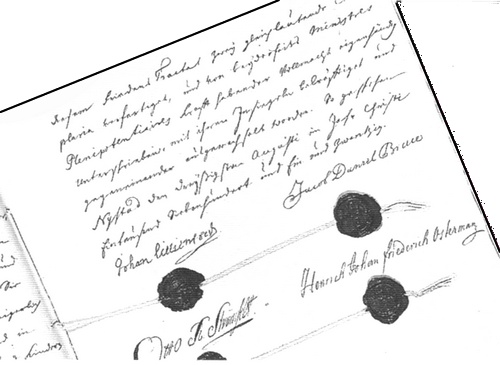 diesem Friedens Tractat zwey gleichlautende
plaria verfertiget, und von beyderseits Ministres
Plenipotentiaires krafft habender Vollmacht eigenhändig
unterschrieben, mit ihren Insiegeln bekräfftiget und
gegeneinander ausgewechselt worden. So geschehen
Nystad den dreyssigsten Augusti im Jahr Christi
Eintausend Siebenhundert und Ein und zwantzig.
Johan Lillienstedt
Jacob Daniel Bruce
Otto R Strömfelt
Henrich Johan Friederich Osterman